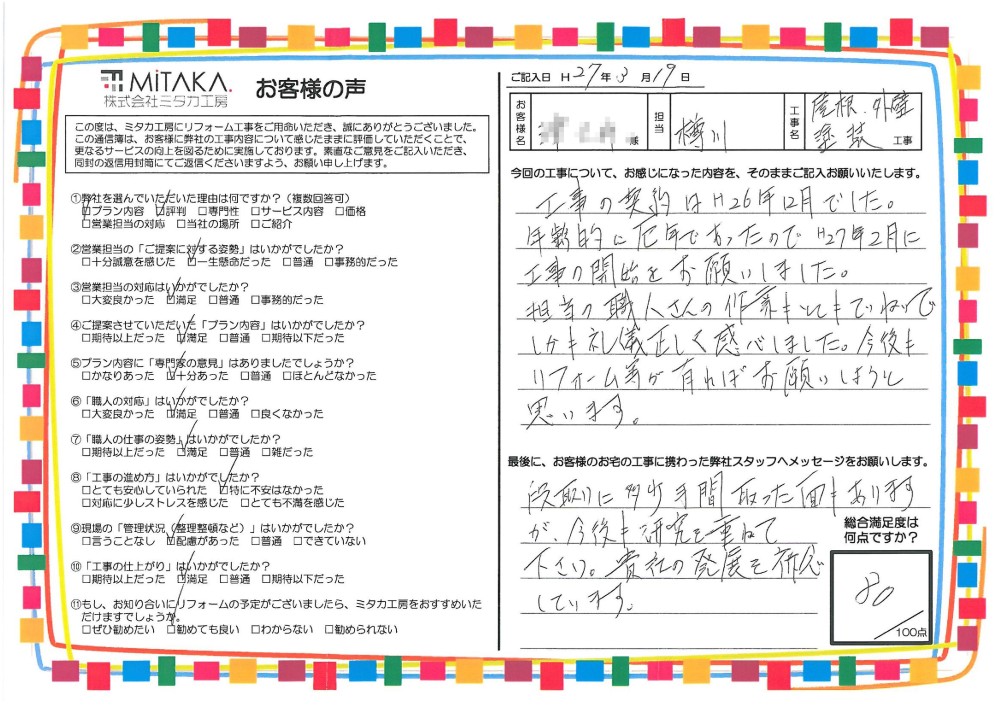 MiTAKA.
株式会社ミタカ工房
お客様の声
この度は、ミタカ工房にリフォーム工事をご用命いただき、誠にありがとうございました。
この通信簿は、お客様に弊社の工事内容について感じたままに評価していただくことで、
更なるサービスの向上を図るために実施しております。素直なご意見をご記入いただき、
同封の返信用封筒にてご返信くださいますよう、お願い申し上げます。
①弊社を選んでいただいた理由は何ですか?(複数回答可)
□プラン内容 ☑評判 □専門性 □サービス内容 □価格
□営業担当の対応 □当社の場所 □ご紹介
②営業担当の「ご提案に対する姿勢」はいかがでしたか?
□十分誠意を感じた ☑一生懸命だった □普通 □事務的だった
③営業担当の対応はいかがでしたか?
□大変良かった ☑満足 □普通 □事務的だった
④ご提案させていただいた「プラン内容」はいかがでしたか?
□期待以上だった ☑満足 □普通 □期待以下だった
⑤プラン内容に「専門家の意見」はありましたでしょうか?
□かなりあった ☑十分あった □普通 □ほとんどなかった
⑥「職人の対応」はいかがでしたか?
□大変良かった ☑満足 □普通 □良くなかった
⑦「職人の仕事の姿勢」はいかがでしたか?
□期待以上だった ☑満足 □普通 □雑だった
⑧「工事の進め方」はいかがでしたか?
□とても安心していられた ☑特に不安はなかった
□対応に少しストレスを感じた □とても不満を感じた
⑨現場の「管理状況(整理整頓など)」はいかがでしたか?
□言うことなし ☑配慮があった □普通 □できていない
⑩「工事の仕上がり」はいかがでしたか?
□期待以上だった ☑満足 □普通 □期待以下だった
⑪もし、お知り合いにリフォームの予定がございましたら、ミタカ工房をおすすめいた
だけますでしょうか。
□ぜひ勧めたい ☑勧めても良い □わからない □勧められない
ご記入日 H27年3月19日
お客様名 様 担当 樽川 工事名 屋根・外壁塗装 工事
今回の工事について、お感じになった内容を、そのままご記入お願いいたします。
工事の契約はH26年12月でした。
年齢的に厄年であったので H27年2月に
工事の開始をお願いしました。
担当の職人さんの作業もとてもていねいで
しかも礼儀正しく感じました。今後も
リフォーム等が有ればお願いしようと
思います。
最後に、お客様のお宅の工事に携わった弊社スタッフへメッセージをお願いします。
段取りに多少手間取った面もあります
が、今後も研究を重ねて
下さい。貴社の発展を祈念
しています。
総合満足度は
何点ですか?
80
/100点